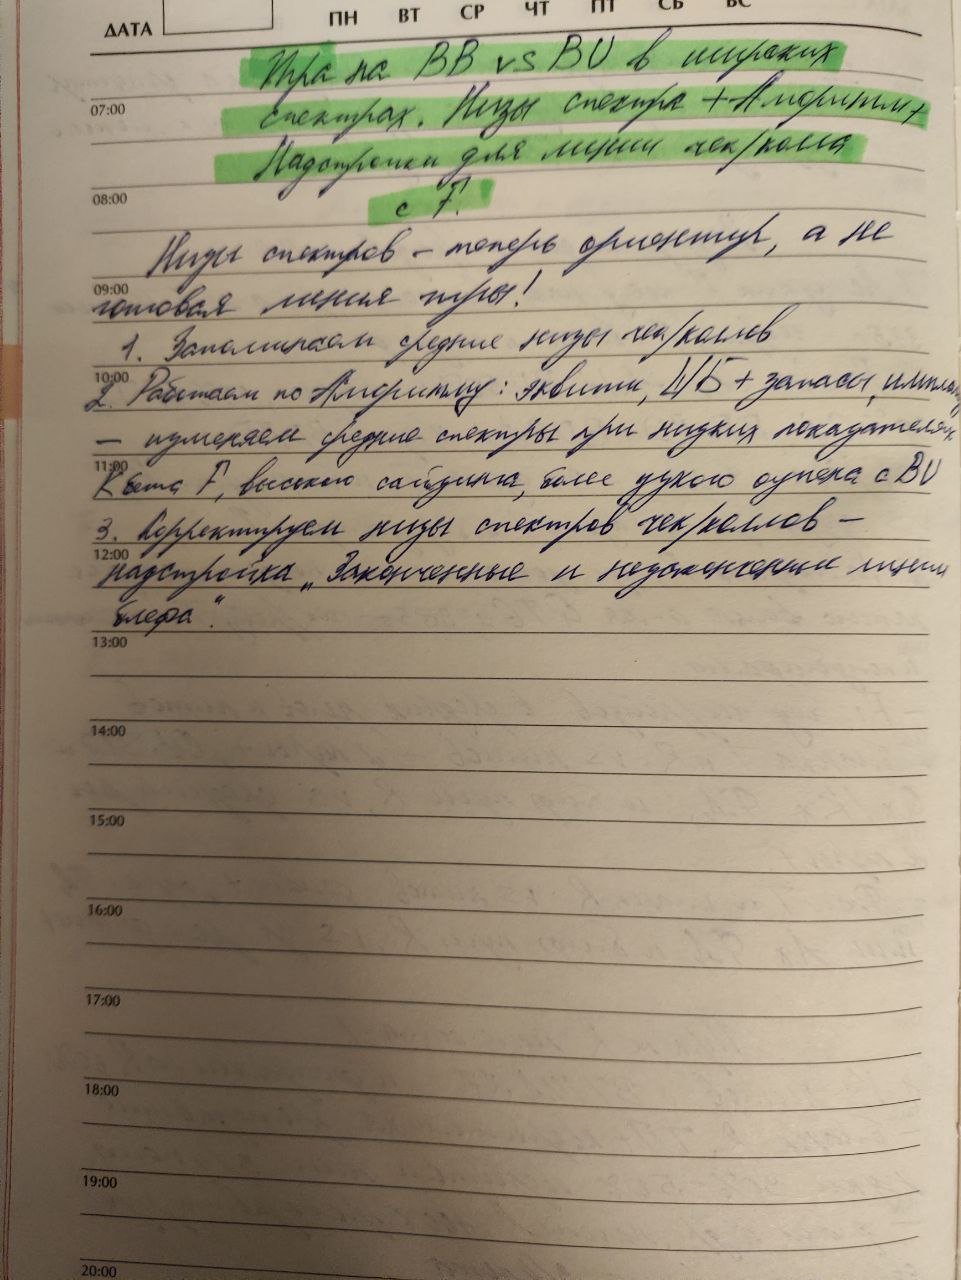 ДАТА ПН ВТ СР ЧТ ПТ СБ ВС
Игра на BB vs BU в широких
07:00
спектрах. Низы спектра + Алгоритм +
Надстройки для линии чек/колла
08:00
с F.
Низы спектров – теперь ориентир, а не
09:00
готовая линия игры!
1. Запоминаем средние низы чек/коллов
10:00
2. Работаем по Алгоритму: эквити, ШБ + запасы,
– изменяем средние спектры при низких показателях
11:00
бета F, высокого сайзинга, более узкого оупена с BU
3. Корректируем низы спектров чек/коллов –
12:00
надстройка „Законченные и незаконченные линии
блефа“.
13:00
14:00
15:00
16:00
17:00
18:00
19:00
20:00